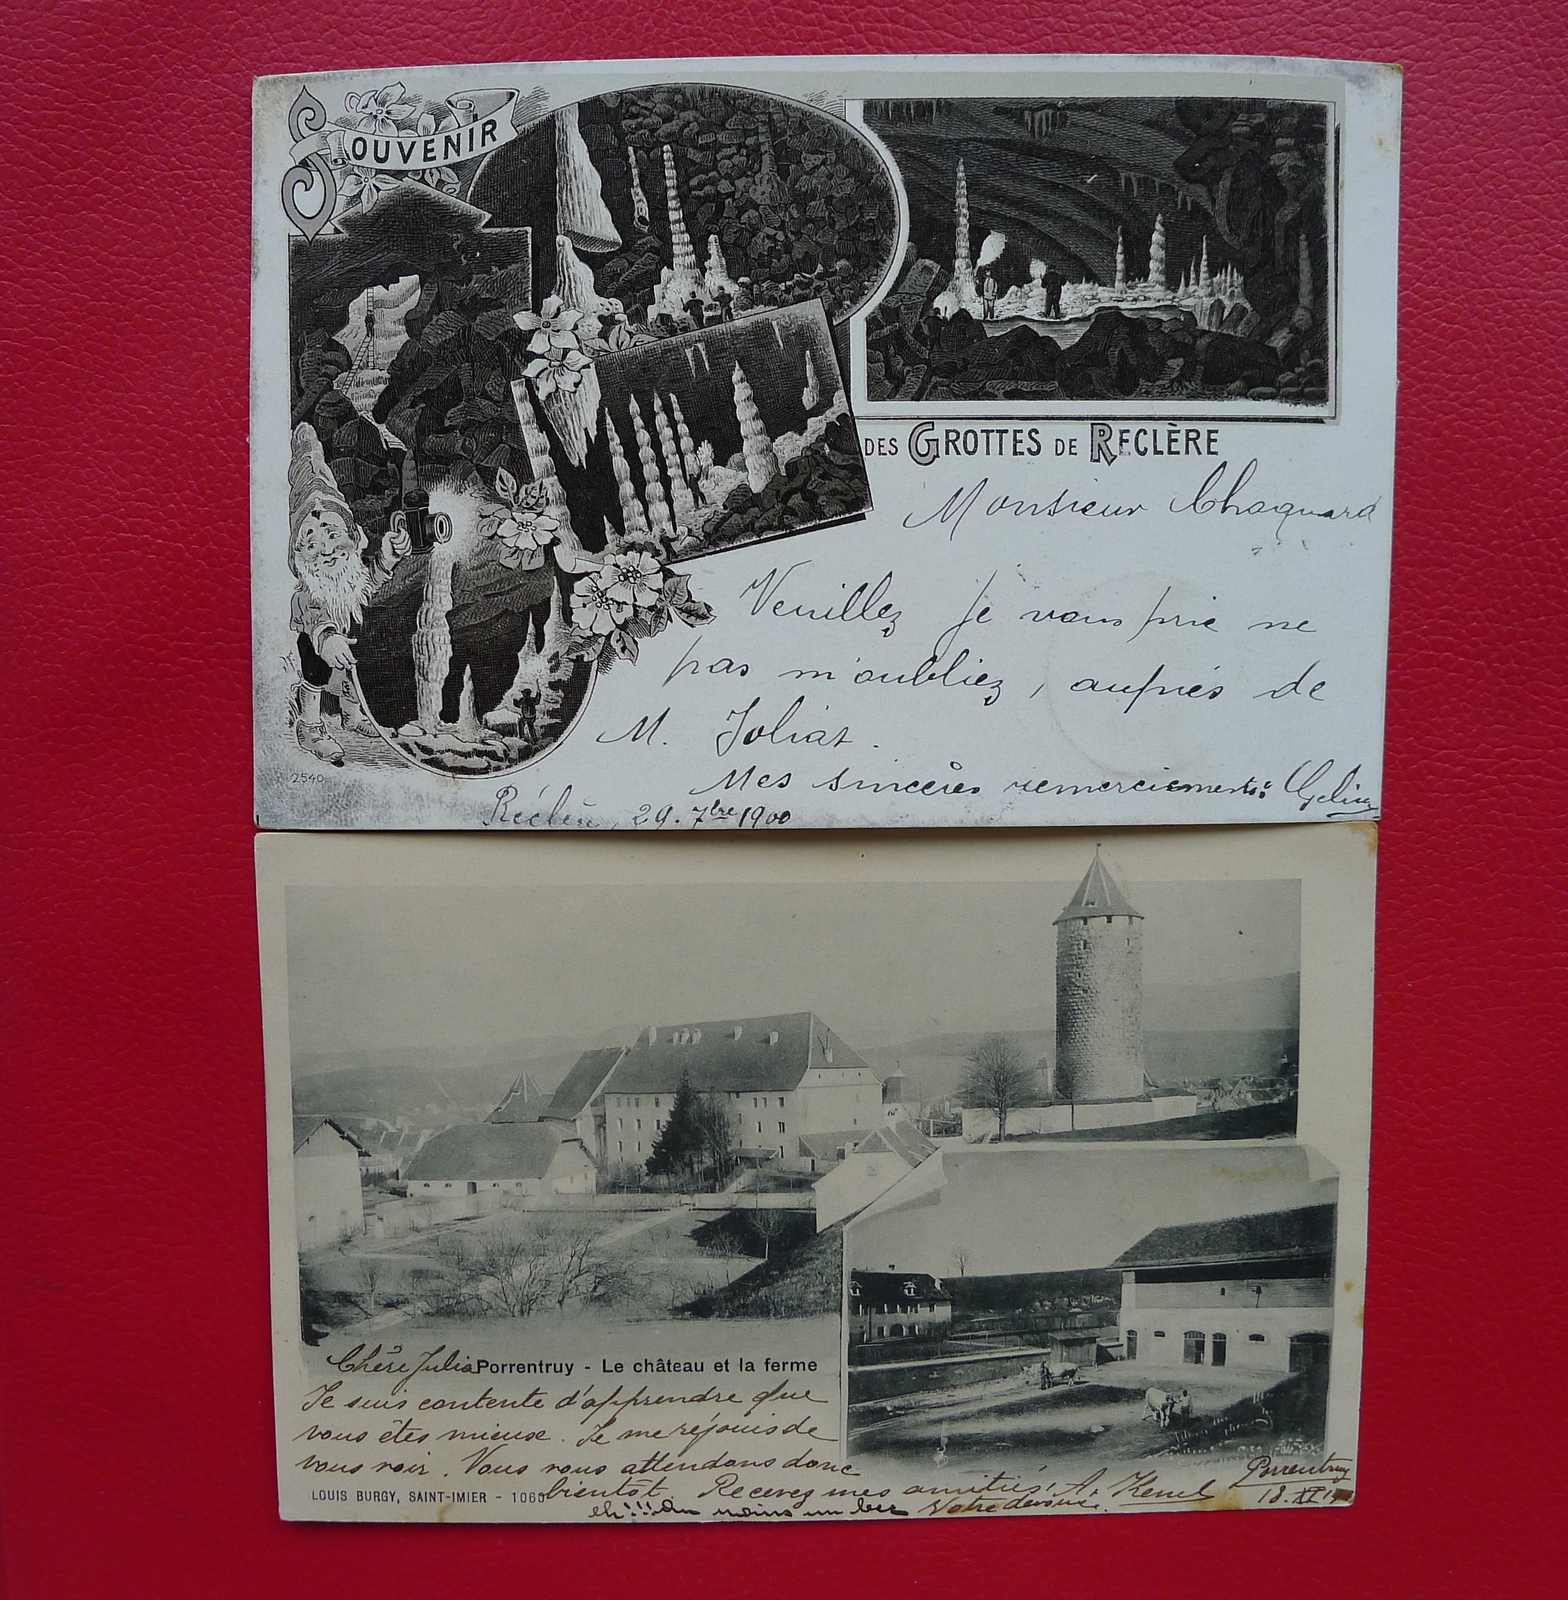 SOUVENIR
DES GROTTES DE RECLÈRE
Monsieur Choquard
Veuillez je vous prie ne
pas m'oubliez, auprès de
M. Joliat.
Mes sincères remerciements
29. 7bre 1900
2540
Chère Julia
Porrentruy - Le château et la ferme
Je suis contente d'apprendre que
vous êtes mieux. Je me réjouis de
vous voir. Vous vous attendons donc
bientôt. Recevez mes amitiés. A.
Votre dévouée.
Porrentruy
18. XI
eh!!! au moins un bec
LOUIS BURGY, SAINT-IMIER - 1065